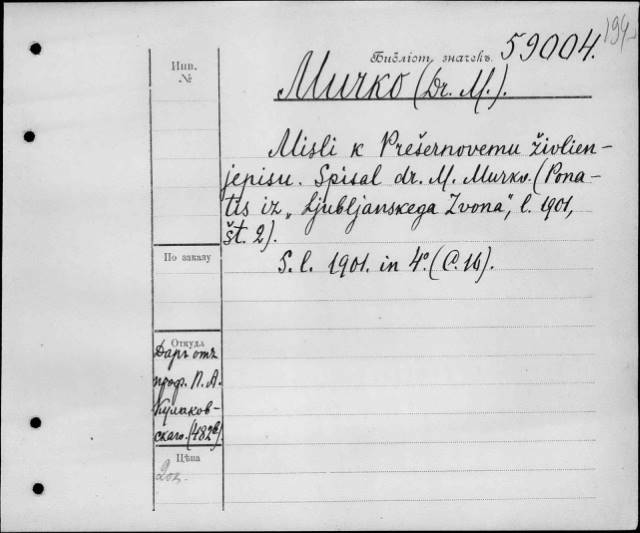 194
Библіот. значекъ.
59004.
Инв.
№
Мурко (Dr. M.).
Misli k Prešernovemu živlien-
jepisu. Spisal dr. M. Murko. (Pona-
tis iz „Ljubljanskega Zvona“, l. 1901,
št. 2).
S. l. 1901. in 4º. (С. 16).
По заказу
Откуда
Даръ отъ
проф. П. А.
Кулаков-
скаго. (482).
Цѣна